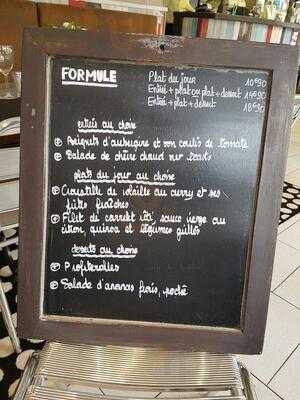 FORMULE
Plat du jour 10€90
Entrée + plat ou plat + dessert
Entrée + plat + dessert 18€90
entrées au choix
Beignets d'aubergine et son coulis de tomate
Salade de chèvre chaud sur toasts
plats du jour au choix
Croustille de volaille au curry et ses
frites fraîches
Filet de carrelet rôti, sauce vierge au
citron, quinoa et légumes grillés
desserts au choix
Profiteroles
Salade d'ananas frais, poché